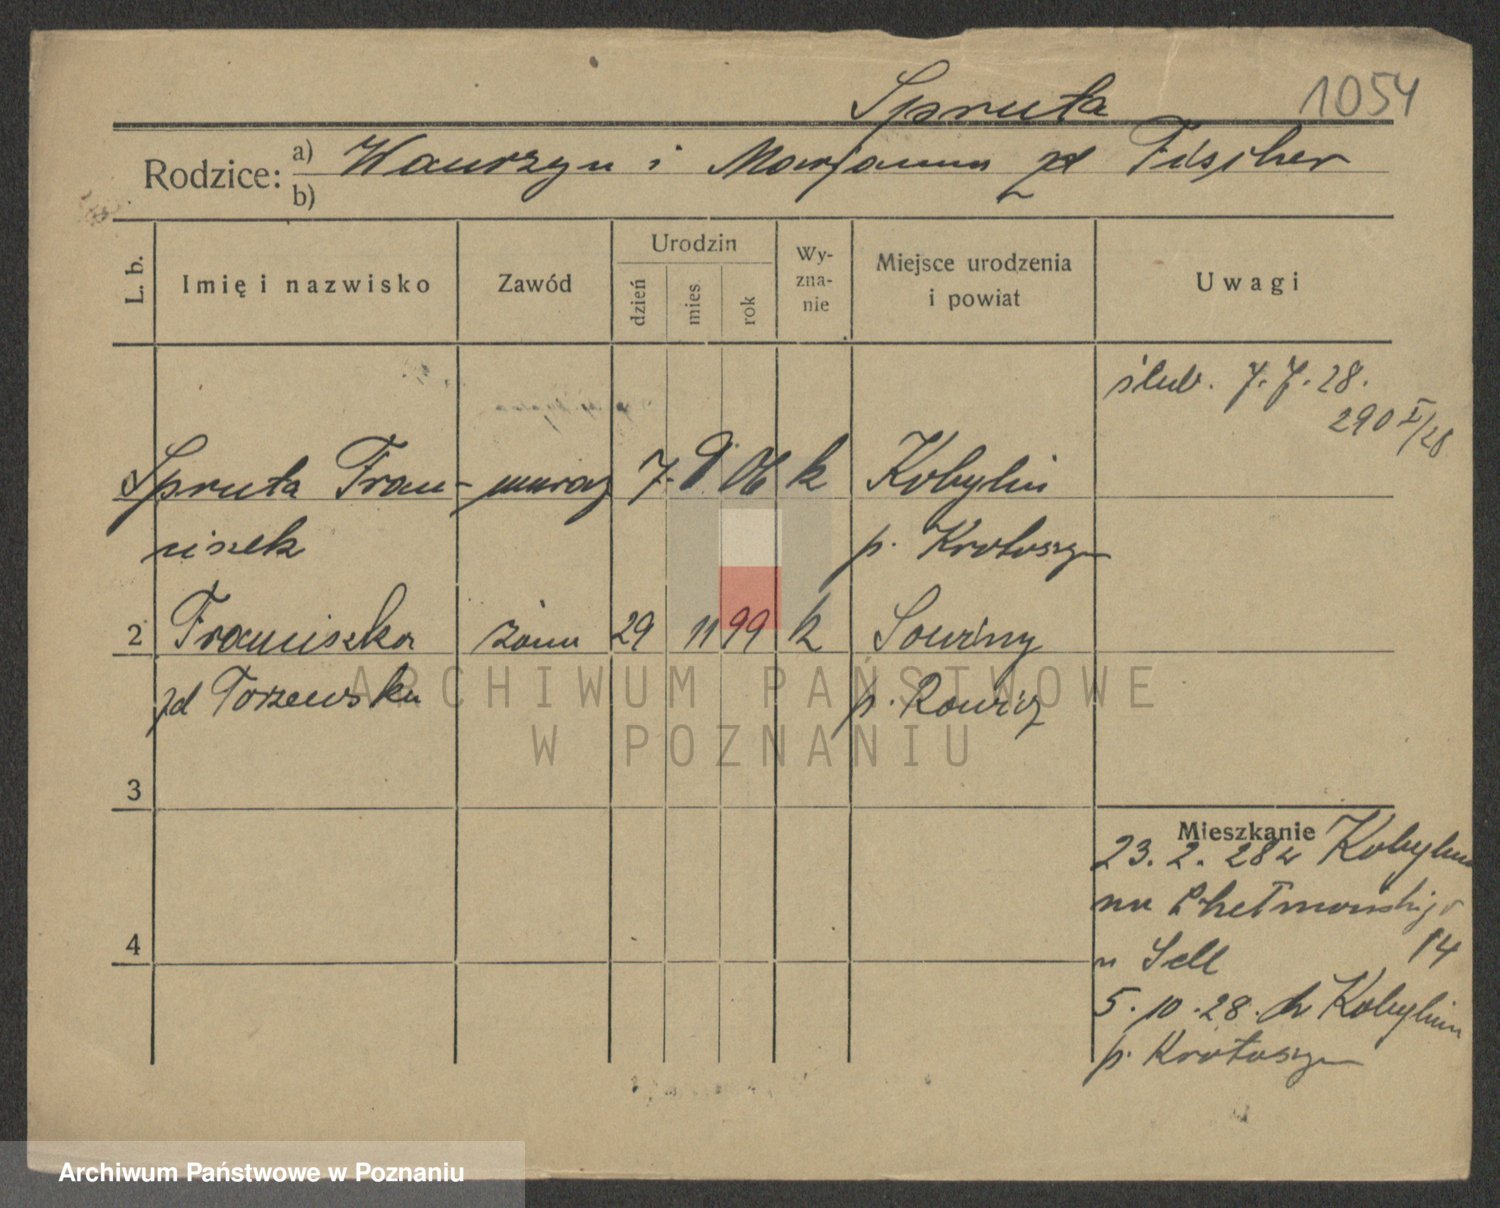 Spruta 1054
Rodzice: a) Wawrzyn i Marjanna zd Fischer
b)
L. b. Imię i nazwisko Zawód Urodzin dzień mies rok Wyznanie Miejsce urodzenia i powiat Uwagi
ślub. 7.7.28.
290 I/28
Spruta Fran- muraz 7. 9. 06 k Kobylin
ciszek p. Krotoszyn
2 Franciszka żona 29 11 99 k Sowiny
zd Torzewska p. Rawicz
ARCHIWUM PAŃSTWOWE
W POZNANIU
3
Mieszkanie
23. 2. 28 z Kobylina
na Chełmońskiego
14
u Sell
5. 10. 28. do Kobylina
4
p. Krotoszyn
Archiwum Państwowe w Poznaniu